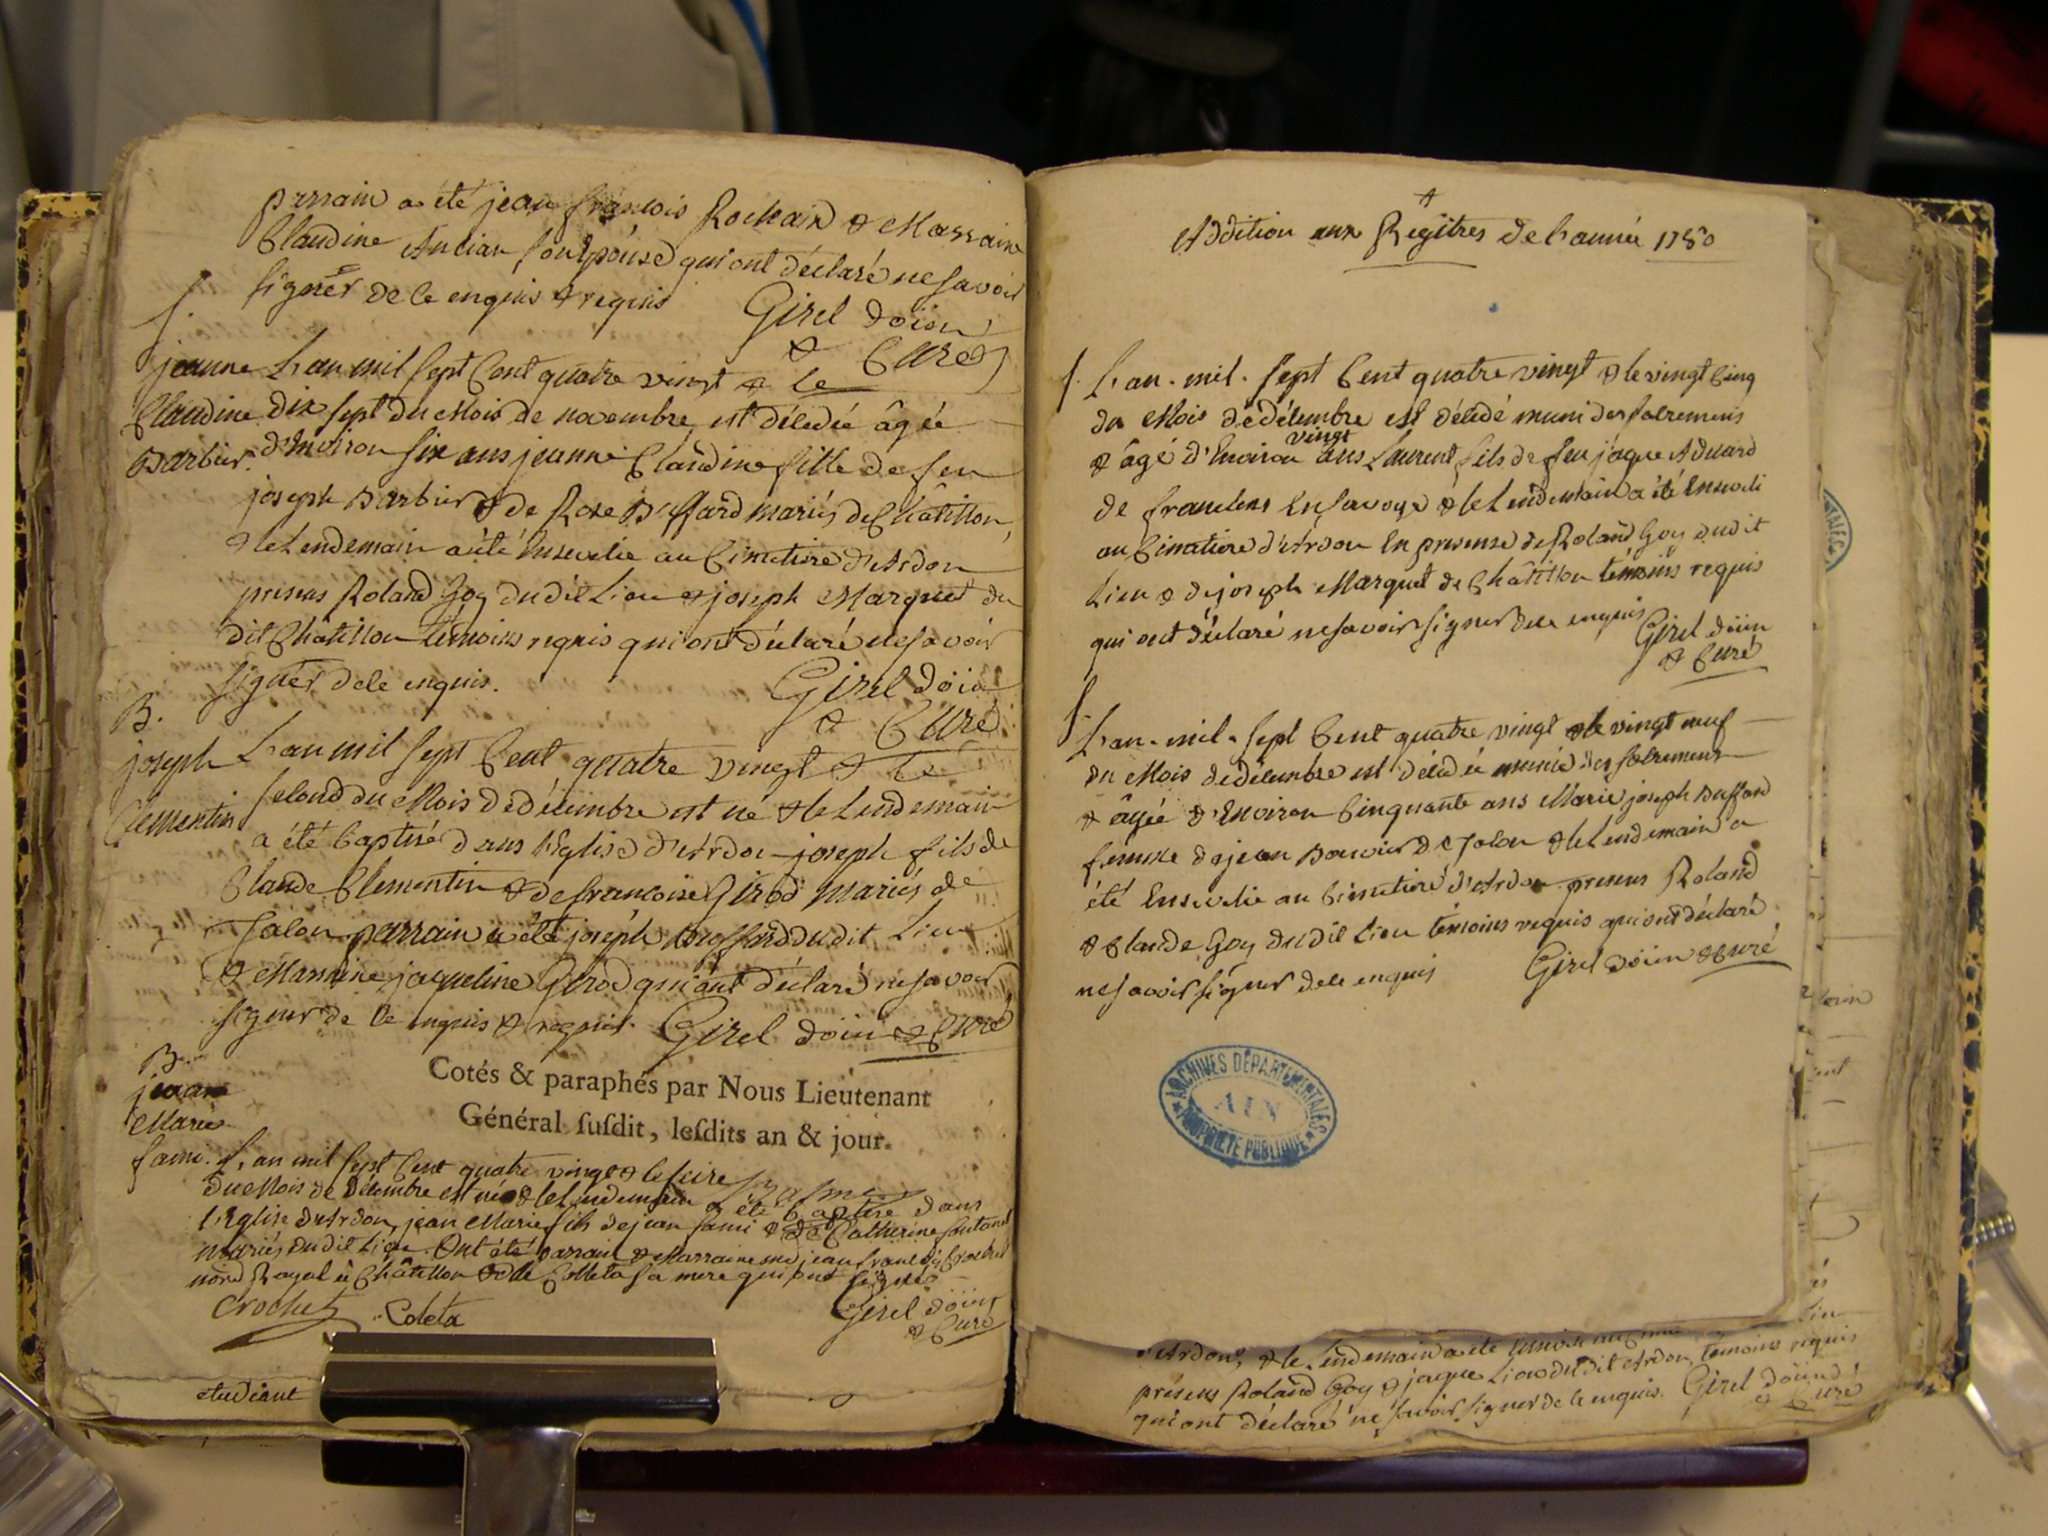 parrain a été jean françois Rochaix & Marraine
Claudine Ancian son Epouse qui ont déclaré ne savoir
signer de ce enquis & requis
Girel doien
& Curé
S.
jeanne
Claudine
Barbier.
L'an mil sept Cent quatre vingt & le
dix sept du Mois de novembre est décédée âgée
d'Environ six ans jeanne Claudine fille de feu
joseph Barbier & de Rose Buffard mariés de Châtillon,
& le Lendemain a été Ensevelie au Cimetiere d'Ardon
présens Roland Goy dudit Lieu & joseph Marquet du
dit Châtillon témoins requis qui ont déclaré ne savoir
signer de ce enquis.
Girel doien
& Curé
B.
joseph
Clementin
L'an mil sept Cent quatre vingt & le
second du Mois de décembre est né & le Lendemain
a été baptisé dans l'Eglise d'Ardon joseph fils de
Claude Clementin & de françoise Girod mariés de
Jalon parrain a été joseph Buffard dudit Lieu
& Marraine jaqueline Girod qui ont déclaré ne savoir
signer de ce enquis & requis. Girel doien & Curé
Cotés & paraphés par Nous Lieutenant
Général ſuſdit, leſdits an & jour.
B.
jean
Marie
fami.
L'an mil sept Cent quatre vingt & le seize
du Mois de décembre est né & le Lendemain a été baptisé dans
l'Eglise d'Ardon jean Marie fils de jean fami & de Catherine
mariés dudit Lieu. Ont été parrain & Marraine jean françois Crochet
Royal à Châtillon & Colleta sa mere qui ont signé
Crochet Coleta
Girel doien
& Curé
etudiant
Addition aux Regîtres de l'année 1780
S. L'an. mil. sept Cent quatre vingt & le vingt Cinq
du Mois de décembre est décédé muni des sacremens
& âgé d'Environ vingt ans Laurent fils de feu jaque Aduard
de franclens En savoye & le Lendemain a été Enseveli
au Cimetiere d'Ardon En presense de Roland Goy dudit
Lieu & de joseph Marquet de Châtillon témoins requis
qui ont déclaré ne savoir signer de ce enquis
Girel doien
& Curé
S. L'an. mil. sept Cent quatre vingt & le vingt neuf
du Mois de décembre est décédée munie des sacremens
& âgée d'Environ Cinquante ans Marie joseph Buffard
femme de jean Bouvier de Jalon & le Lendemain a
été Ensevelie au Cimetiere d'Ardon presens Roland
& Claude Goy dudit Lieu témoins requis qui ont déclaré
ne savoir signer de ce enquis
Girel doien & Curé
ARCHIVES DÉPARTEMENTALES
AIN
PROPRIÉTÉ PUBLIQUE
d'Ardon, & le Lendemain a été
présens Roland Goy & jaque Lion dudit Ardon témoins requis
qui ont déclaré ne savoir signer de ce enquis. Girel doien
& Curé